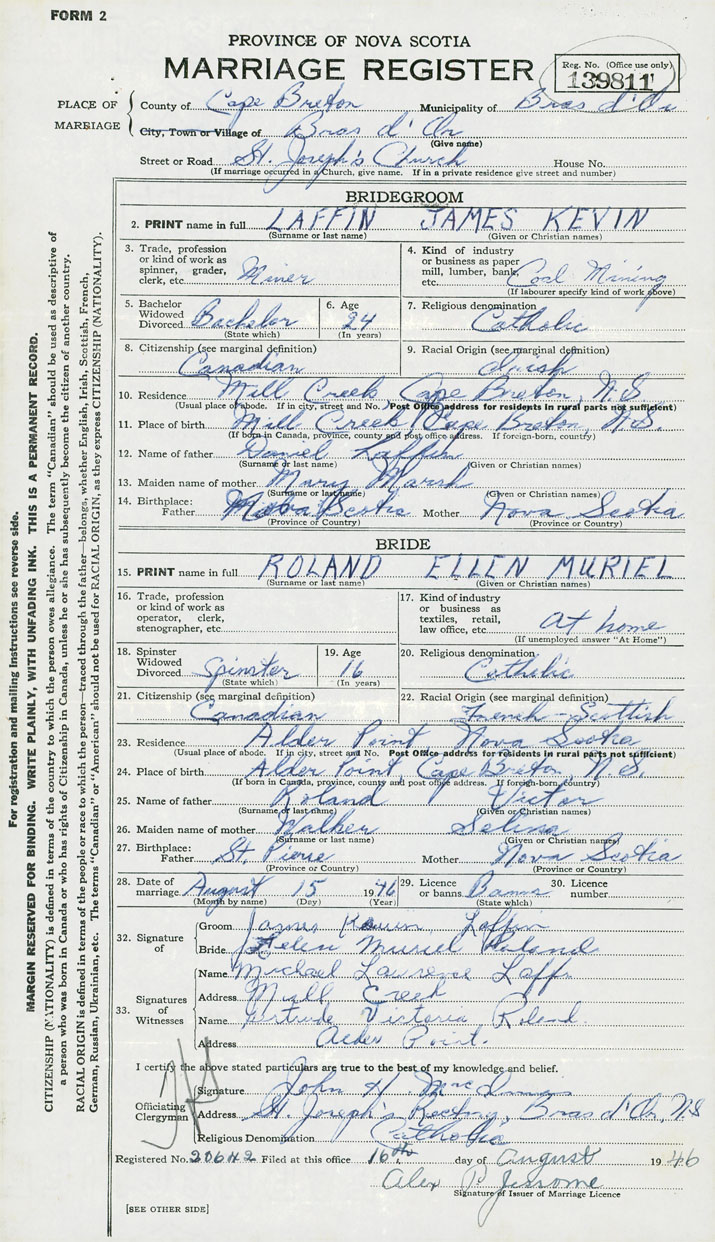 FORM 2
PROVINCE OF NOVA SCOTIA
MARRIAGE REGISTER
Reg. No. (Office use only)
139811
PLACE OF MARRIAGE
County of Cape Breton Municipality of Bras d'Or
City, Town or Village of Bras d'Or
(Give name)
Street or Road St. Joseph's Church House No.
(If marriage occurred in a Church, give name. If in a private residence give street and number)
BRIDEGROOM
2. PRINT name in full LAFFIN JAMES KEVIN
(Surname or last name) (Given or Christian names)
3. Trade, profession or kind of work as spinner, grader, clerk, etc. Miner
4. Kind of industry or business as paper mill, lumber, bank, etc. Coal Mining
(If labourer specify kind of work above)
5. Bachelor Widowed Divorced Bachelor
(State which)
6. Age 24
(In years)
7. Religious denomination Catholic
8. Citizenship (see marginal definition) Canadian
9. Racial Origin (see marginal definition) Irish
10. Residence Mill Creek Cape Breton, N.S
(Usual place of abode. If in city, street and No. Post Office address for residents in rural parts not sufficient)
11. Place of birth Mill Creek Cape Breton, N.S.
(If born in Canada, province, county and post office address. If foreign-born, country)
12. Name of father Daniel Laffin
(Surname or last name) (Given or Christian names)
13. Maiden name of mother Mary Marsh
(Surname or last name) (Given or Christian names)
14. Birthplace: Father Nova Scotia Mother Nova Scotia
(Province or Country) (Province or Country)
BRIDE
15. PRINT name in full ROLAND ELLEN MURIEL
(Surname or last name) (Given or Christian names)
16. Trade, profession or kind of work as operator, clerk, stenographer, etc.
17. Kind of industry or business as textiles, retail, law office, etc. At home
(If unemployed answer "At Home")
18. Spinster Widowed Divorced Spinster
(State which)
19. Age 16
(In years)
20. Religious denomination Catholic
21. Citizenship (see marginal definition) Canadian
22. Racial Origin (see marginal definition) French-Scottish
23. Residence Alder Point Nova Scotia
(Usual place of abode. If in city, street and No. Post Office address for residents in rural parts not sufficient)
24. Place of birth Alder Point, Cape Breton, N.S.
(If born in Canada, province, county and post office address. If foreign-born, country)
25. Name of father Roland Victor
(Surname or last name) (Given or Christian names)
26. Maiden name of mother Walker Selina
(Surname or last name) (Given or Christian names)
27. Birthplace: Father St. Pierre Mother Nova Scotia
(Province or Country) (Province or Country)
28. Date of marriage August 15 1946
(Month by name) (Day) (Year)
29. Licence or banns Banns
(State which)
30. Licence number
32. Signature of
Groom James Kevin Laffin
Bride Helen Muriel Roland
33. Signatures of Witnesses
Name Michael Laurence
Address Mill Creek
Name Gertrude Victoria Roland
Address Alder Point.
I certify the above stated particulars are true to the best of my knowledge and belief.
Officiating Clergyman
Signature John H
Address St. Joseph's Rectory, Bras d'Or, N.S
Religious Denomination Catholic
Registered No. 20642 Filed at this office 16th day of August 1946
Alex P. Jerrome
Signature of Issuer of Marriage Licence
[SEE OTHER SIDE]
For registration and mailing instructions see reverse side.
MARGIN RESERVED FOR BINDING. WRITE PLAINLY, WITH UNFADING INK. THIS IS A PERMANENT RECORD.
CITIZENSHIP (NATIONALITY) is defined in terms of the country to which the person owes allegiance. The term "Canadian" should be used as descriptive of
a person who was born in Canada or who has rights of Citizenship in Canada, unless he or she has subsequently become the citizen of another country.
RACIAL ORIGIN is defined in terms of the people or race to which the person—traced through the father—belongs, whether English, Irish, Scottish, French,
German, Russian, Ukrainian, etc. The terms "Canadian" or "American" should not be used for RACIAL ORIGIN, as they express CITIZENSHIP (NATIONALITY).